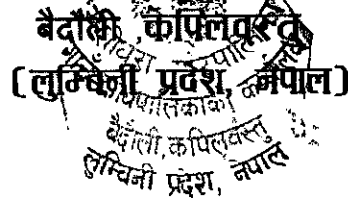 बैदौली, कपिलवस्तु
(लुम्बिनी प्रदेश, नेपाल)
बैदौली, कपिलवस्तु
लुम्बिनी प्रदेश, नेपाल